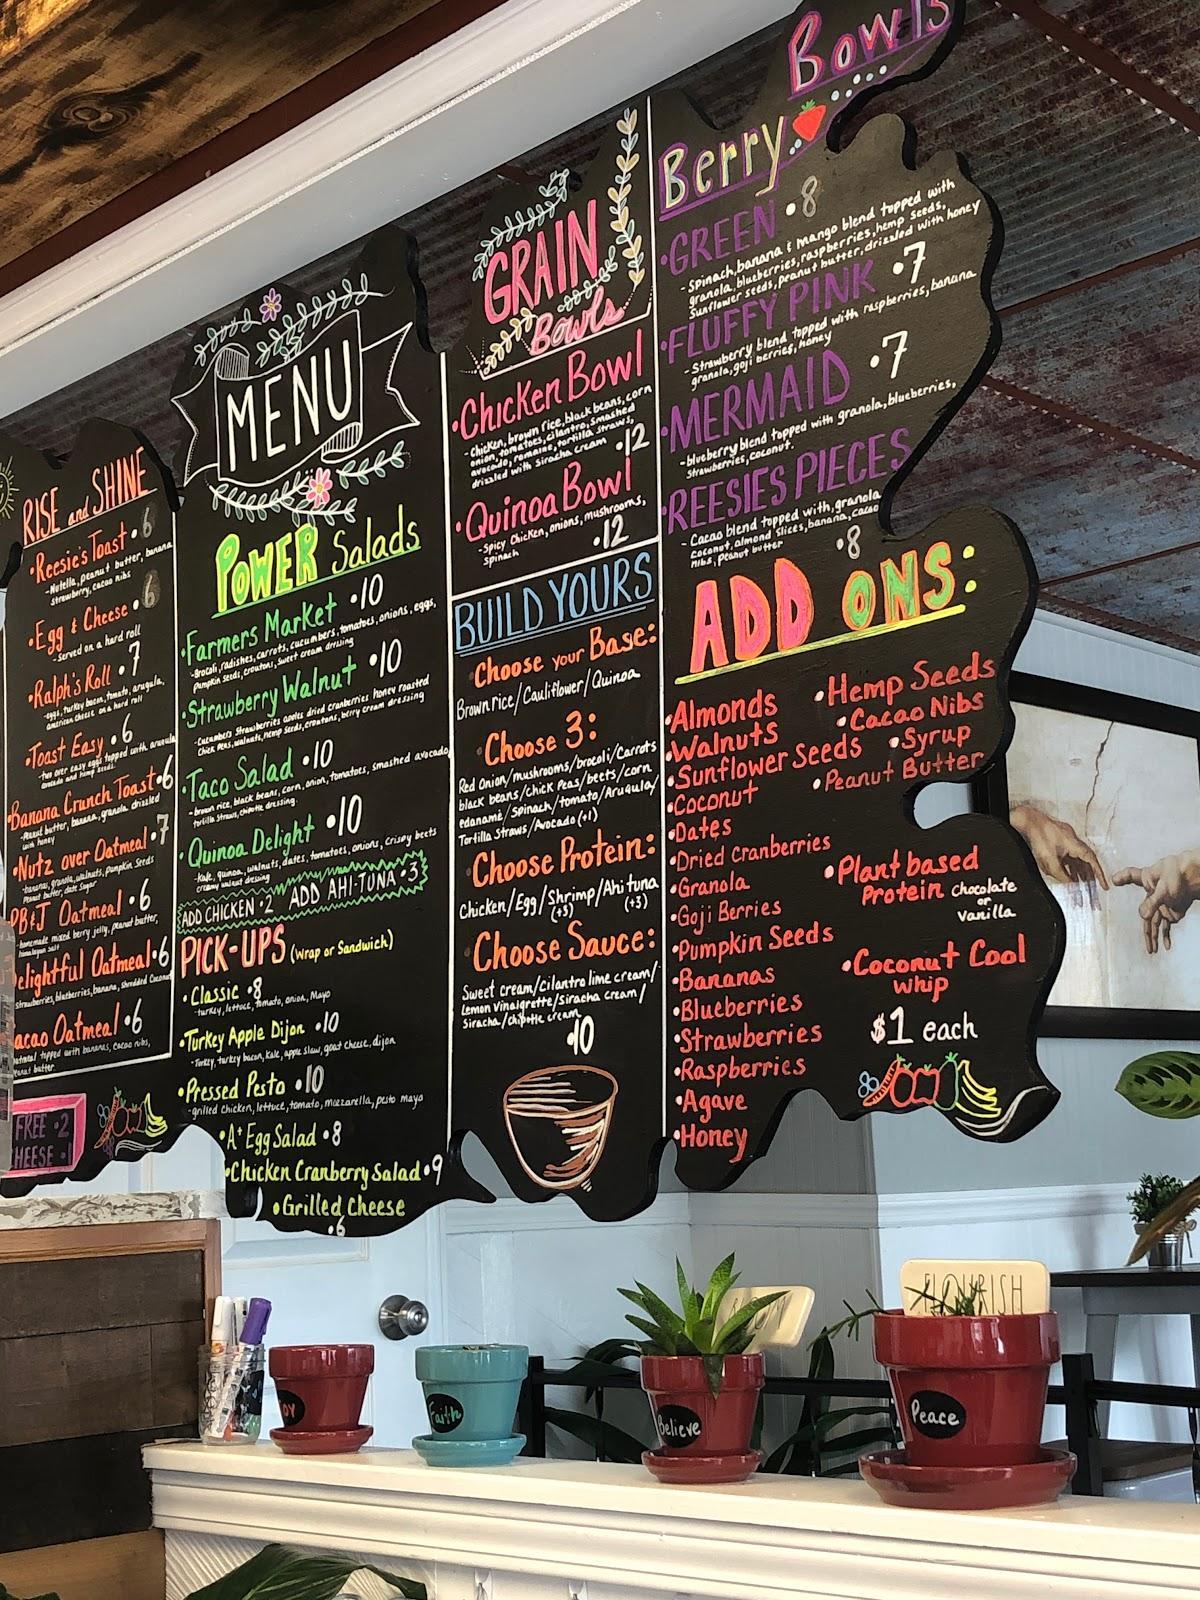 RISE and SHINE
• Reesie's Toast • 6
- Nutella, peanut butter, banana
strawberry, cacao nibs
• Egg & Cheese • 6
- served on a hard roll
• Ralph's Roll • 7
- eggs, turkey bacon, tomato, arugula,
american cheese on a hard roll
• Toast Easy • 6
- two over easy eggs topped with arugula
avocado and hemp seeds
• Banana Crunch Toast • 6
- Peanut butter, banana, granola drizzled
with honey
• Nutz over Oatmeal • 7
- bananas, granola, walnuts, pumpkin seeds
Peanut butter, date sugar
PB&J Oatmeal • 6
- homemade mixed berry jelly, peanut butter,
himalayan salt
elightful Oatmeal • 6
strawberries, blueberries, banana, shredded Coconut
acao Oatmeal • 6
oatmeal topped with bananas, cacao nibs,
Peanut butter
FREE • 2
CHEESE • 1
MENU
POWER Salads
• Farmers Market • 10
- Brocoli, radishes, carrots, cucumbers, tomatoes, onions, eggs,
Pumpkin seeds, croutons, sweet cream dressing
• Strawberry Walnut • 10
- Cucumbers Strawberries apples dried cranberries honey roasted
Chick Peas, walnuts, hemp seeds, croutons, berry cream dressing
• Taco Salad • 10
- brown rice, black beans, corn, onion, tomatoes, smashed avocado,
tortilla straws, chipotle dressing.
• Quinoa Delight • 10
- Kale, quinoa, walnuts, dates, tomatoes, onions, crispy beets
creamy walnut dressing
ADD CHICKEN • 2 ADD AHI-TUNA • 3
PICK-UPS (Wrap or Sandwich)
• Classic • 8
- turkey, lettuce, tomato, onion, Mayo
• Turkey Apple Dijon • 10
- Turkey, turkey bacon, kale, apple slaw, goat cheese, dijon
• Pressed Pesto • 10
- grilled Chicken, lettuce, tomato, mozzarella, pesto mayo
• A+ Egg Salad • 8
• Chicken Cranberry Salad • 9
• Grilled Cheese
• 6
GRAIN
Bowls
• Chicken Bowl
- Chicken, brown rice, black beans, corn
onion, tomatoes, cilantro, smashed
avocado, romaine, tortilla straws,
drizzled with Siracha cream • 12
• Quinoa Bowl
- Spicy Chicken, onions, mushrooms,
spinach • 12
BUILD YOURS
Choose your Base:
Brown rice/Cauliflower/Quinoa
Choose 3:
Red Onion/mushrooms/brocoli/Carrots
black beans/chick Peas/beets/corn
edamame/Spinach/tomato/Arugula/
Tortilla Straws/Avocado (+1)
Choose Protein:
Chicken/Egg/Shrimp/Ahi tuna
(+3) (+3)
Choose Sauce:
Sweet cream/cilantro lime cream/
Lemon vinaigrette/Siracha cream/
Siracha/chipotle cream
• 10
Berry Bowls
• GREEN • 8
- Spinach, banana & mango blend topped with
granola, blueberries, raspberries, hemp seeds,
Sunflower seeds, peanut butter, drizzled with honey
• FLUFFY PINK • 7
- Strawberry blend topped with raspberries, banana
granola, goji berries, honey
• MERMAID • 7
- blueberry blend topped with granola, blueberries,
strawberries, coconut.
• REESIES PIECES
- Cacao blend topped with, granola
Coconut, almond slices, banana, cacao
nibs, peanut butter • 8
ADD ONS:
• Almonds
• Walnuts
• Sunflower Seeds
• Coconut
• Dates
• Dried Cranberries
• Granola
• Goji Berries
• Pumpkin Seeds
• Bananas
• Blueberries
• Strawberries
• Raspberries
• Agave
• Honey
• Hemp Seeds
• Cacao Nibs
• Syrup
• Peanut Butter
• Plant based
Protein chocolate
or
Vanilla
• Coconut Cool
whip
$1 each
FLOURISH
Joy
Faith
Believe
Peace